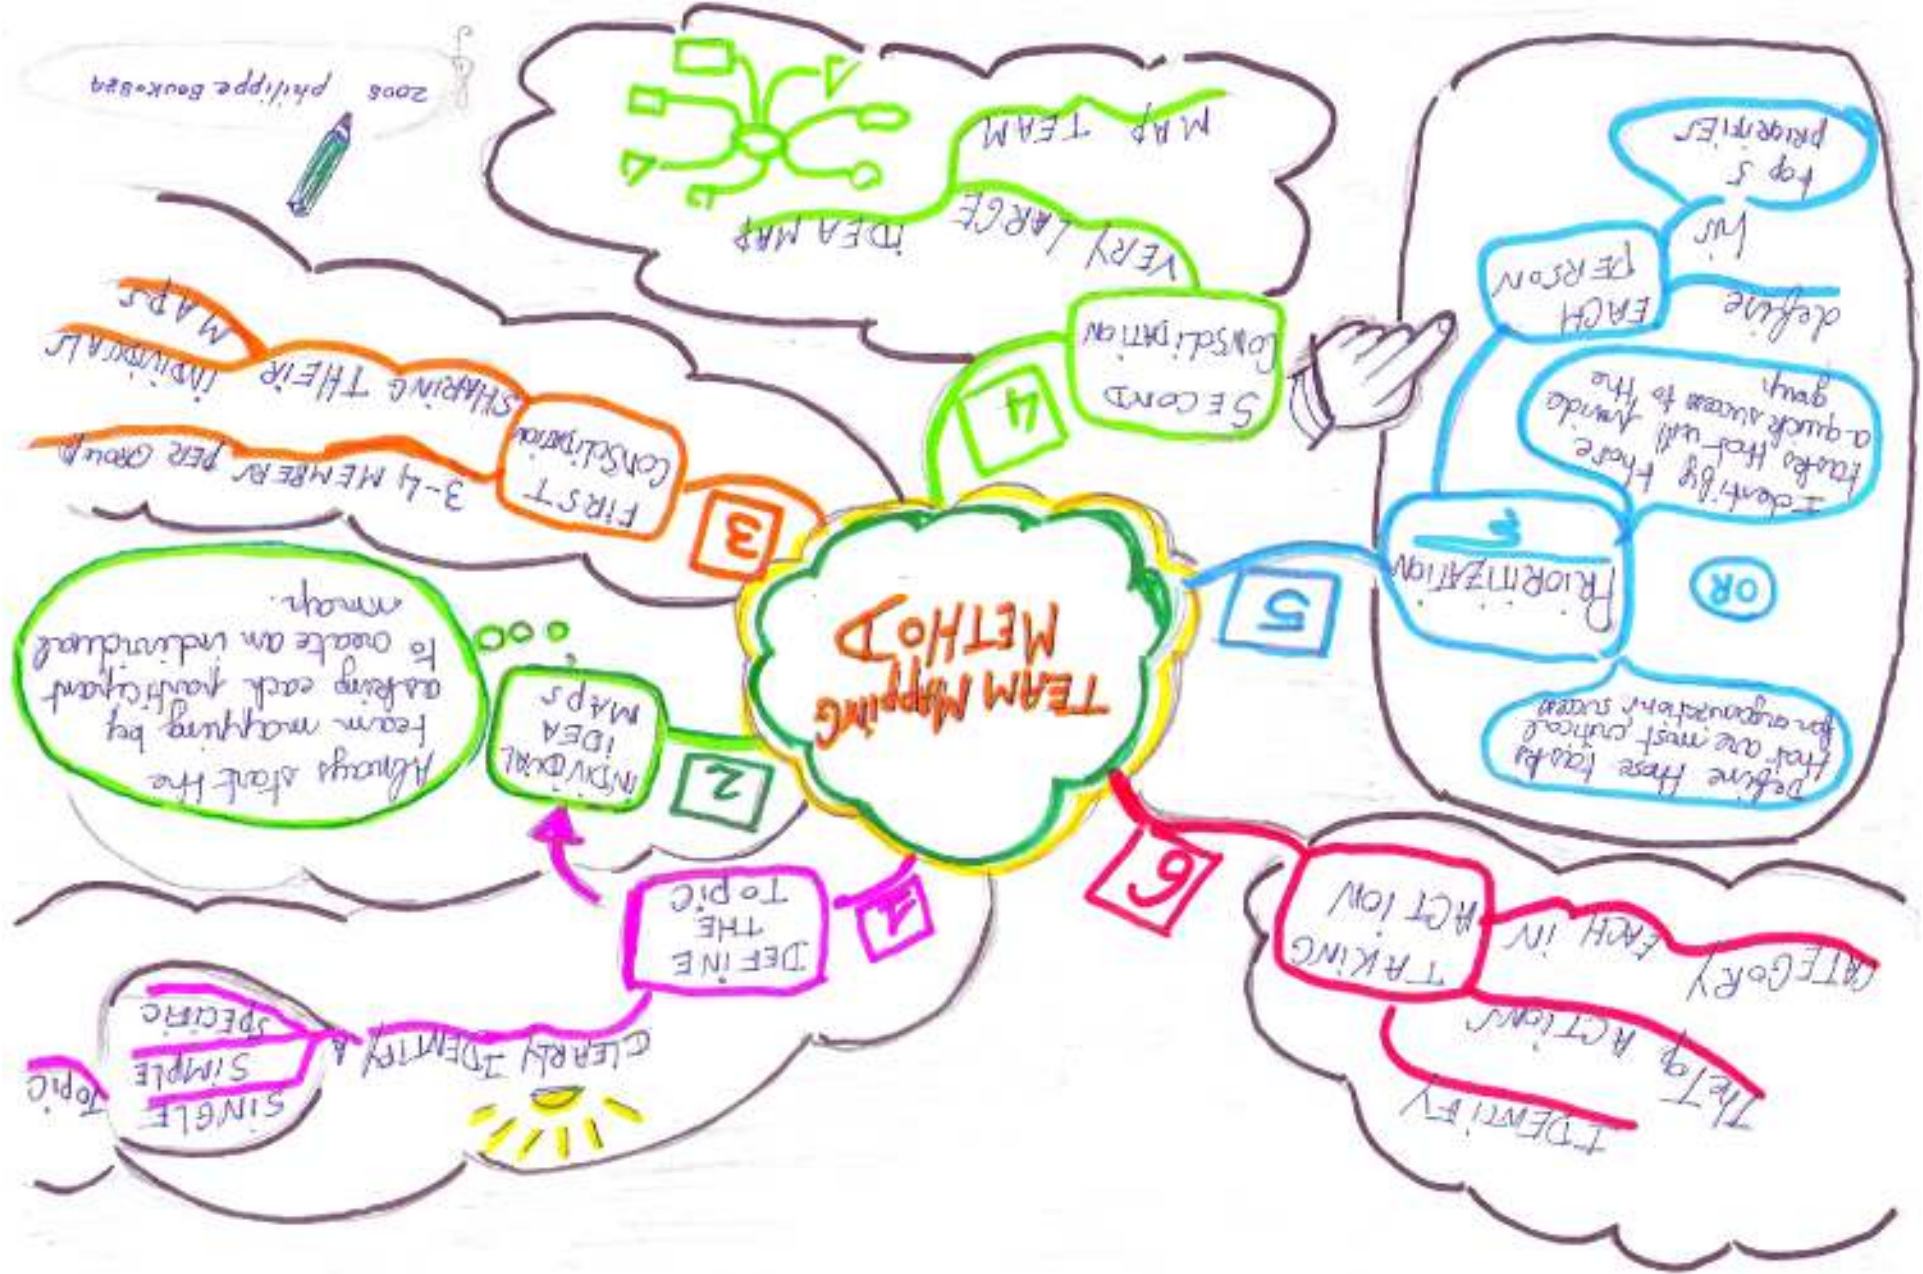 TEAM MAPPING
METHOD
1
DEFINE
THE
TOPIC
CLEARLY IDENTIFY A
SINGLE
SIMPLE
SPECIFIC
TOPIC
2
INDIVIDUAL
IDEA
MAPS
Always start the
team mapping by
asking each participant
to create an individual
map.
3
FIRST
CONSOLIDATION
3-4 MEMBERS PER GROUP
SHARING THEIR
INDIVIDUALS
MAPS
4
SECOND
CONSOLIDATION
VERY LARGE
IDEA MAP
MAP TEAM
5
PRIORITIZATION
Define those tasks
that are most critical
for organizations success
OR
Identify those
tasks that will provide
a quick success to the
group
EACH
PERSON
define
his
top 5
PRIORITIES
6
TAKING
ACTION
IDENTIFY
The Top ACTIONS
EACH IN
CATEGORY
2008 philippe Boukobza